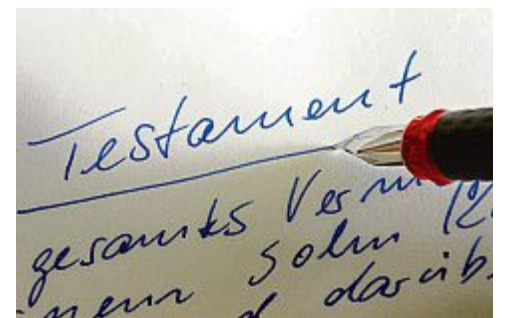 Testament
gesamtes Verm
meinem Sohn
d darüb